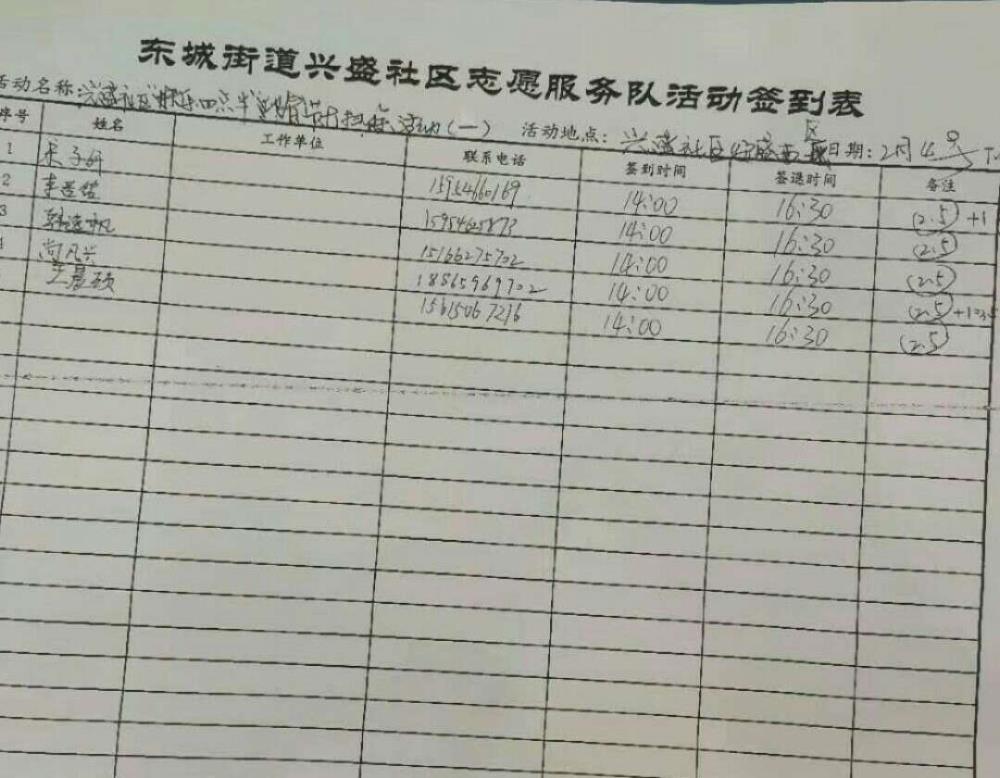 东城街道兴盛社区志愿服务队活动签到表
活动名称:兴盛社区"快乐四点半" 扫除活动(一) 活动地点:兴盛社区 日期:2月4号
序号 姓名 工作单位 联系电话 签到时间 签退时间 备注
1 子 15954660169 14:00 16:30 (2.5)+1
2 李 15954625873 14:00 16:30 (2.5)
3 韩 帆 15166275702 14:00 16:30 (2.5)
尚凡兴 18865969702 14:00 16:30 (2.5)+1=3.5
王晨硕 15615067216 14:00 16:30 (2.5)